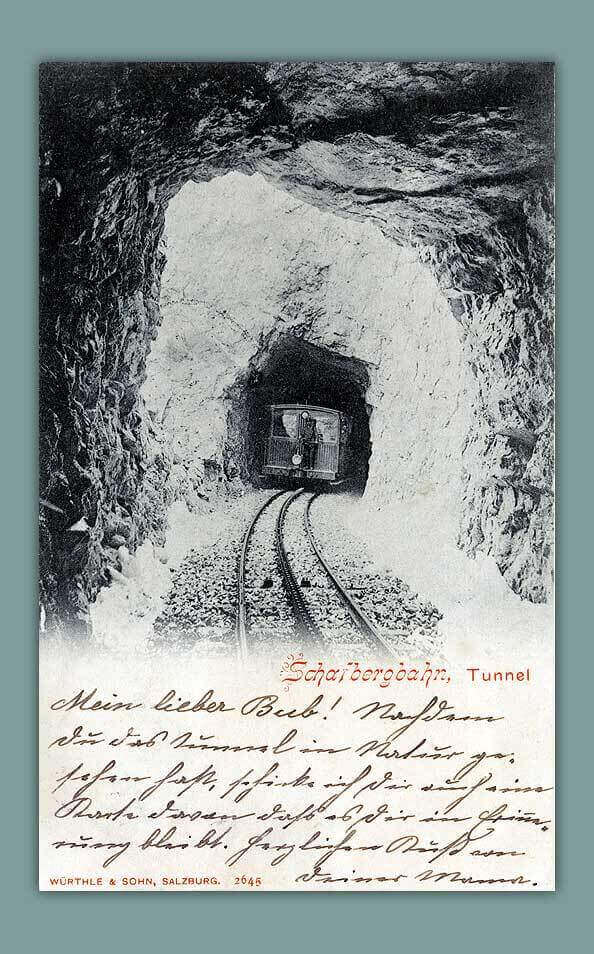 Schafbergbahn, Tunnel
Mein lieber Bub! Nachdem
du das Tunnel in Natur ge-
sehen hast, schicke ich Dir auch eine
Karte davon daß es Dir in Erinne-
rung bleibt. Herzlichen Kuß von
Deiner Mama.
WÜRTHLE & SOHN, SALZBURG. 2645